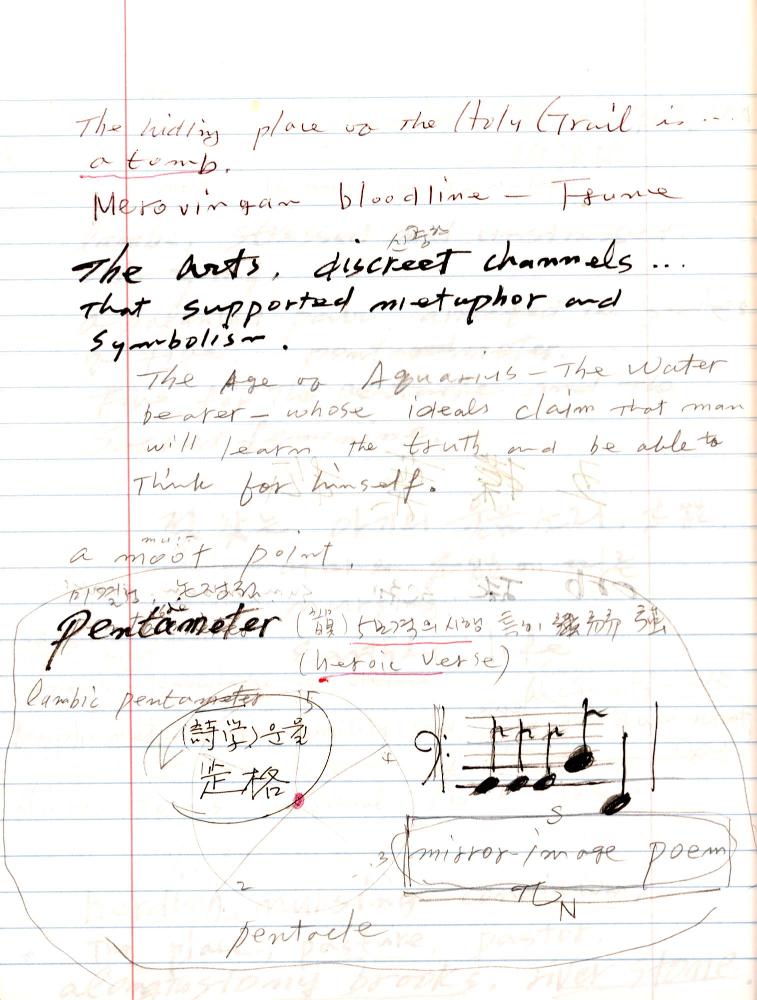 The hiding place of the Holy Grail is ...
a tomb.
Merovingan bloodline —
신중한
The arts, discreet channels ...
that supported metaphor and
symbolism.
The Age of Aquarius — The Water
bearer — whose ideals claim that man
will learn the truth and be able to
Think for himself.
a moot point.
미결의,
pentameter (韻) 5보격의 시행 특히
(heroic verse)
Iambic pentameter
5
(詩学) 운율
4
S
3
mirror-image poem
N
2
pentacle